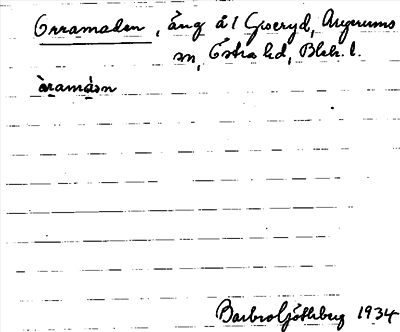 Orramaden, äng å 1 Gioeryd, Augerums
sn, Östra hd, Blek. l.
àramádən
Barbro Göthberg 1934